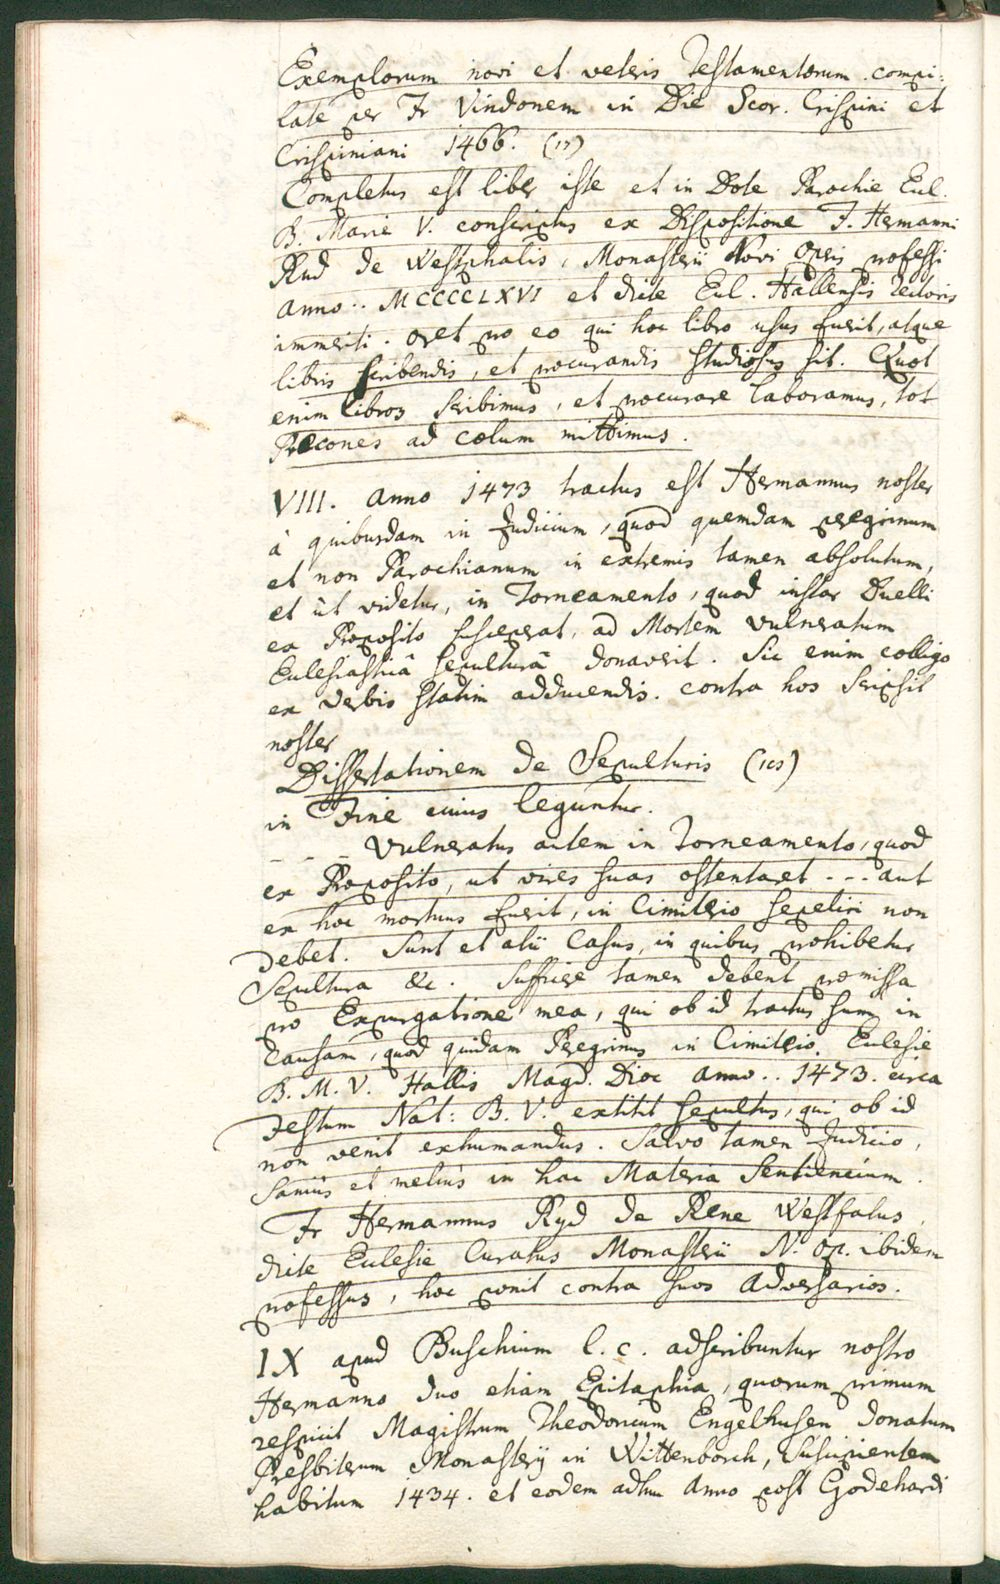 Exemplorum novi et veteris Testamentorum compi:
late per Fr Vindonem in Die Scor. Crispini et
Crispiniani 1466. (17)
Completus est liber iste et in Dote Parochie Eul.
B. Marie V. conscriptus ex Dispositione F. Hermanni
Ryd de Westphalis, Monasterii Novi Operis professi
anno.. MCCCCLXVI et dicte Eul. Hallensis rectoris
immeriti. oret pro eo qui hoc libro usus fuerit, atque
libris scribendis, et procurandis studiosus sit. Quot
enim libros scribimus, et procurare laboramus, tot
Precones ad cœlum mittimus.
VIII. anno 1473 tractus est Hermannus noster
à quibusdam in Judicium, quod quemdam peregrinum
et non Parochianum in extremis tamen absolutum,
et ùt videtur, in Torneamento, quod instar Duelli
ex Proposito susceperat, ad Mortem vulneratum
Eulesiasticâ sepulturâ donaverit. Sic enim colligo
ex verbis statim adducendis. contra hos scripsit
noster
Dissertationem de Sepulturis (18)
in Fine cuius leguntur.
- - - Vulneratus autem in Torneamento, quod
ex Proposito, ut vires suas ostentaret - - - aut
ex hoc mortuus fuerit, in Cimiterio sepeliri non
debet. Sunt et alii Casus, in quibus prohibetur
Sepultura &c. Suffice tamen debent premissa
pro Expurgatione mea, qui ob id tractus sum in
Causam, quod quidam Peregrinus in Cimiterio Eulesie
B. M. V. Hallis Magd. Dioc anno.. 1473. circa
Festum Nat: B. V. extitit sepultus, qui ob id
non venit exhumandus. Salvo tamen Judicio,
Saniùs et meliùs in hac Materia Sentiencium.
Fr Hermannus Ryd de Rene Westfalus,
dicte Eulesie Curatus Monasterii N. Op. ibidem
professus, hoc ponit contra suos Adversarios.
IX apud Buschium l. c. adscribuntur nostro
Hermanno duo etiam Epitaphia, quorum primum
respicit Magistrum Theodoricum Engelhusen donatum
Presbiterum Monasterij in Wittenborch, Suscipientem
habitum 1434. et eodem adhuc Anno post Godehardi